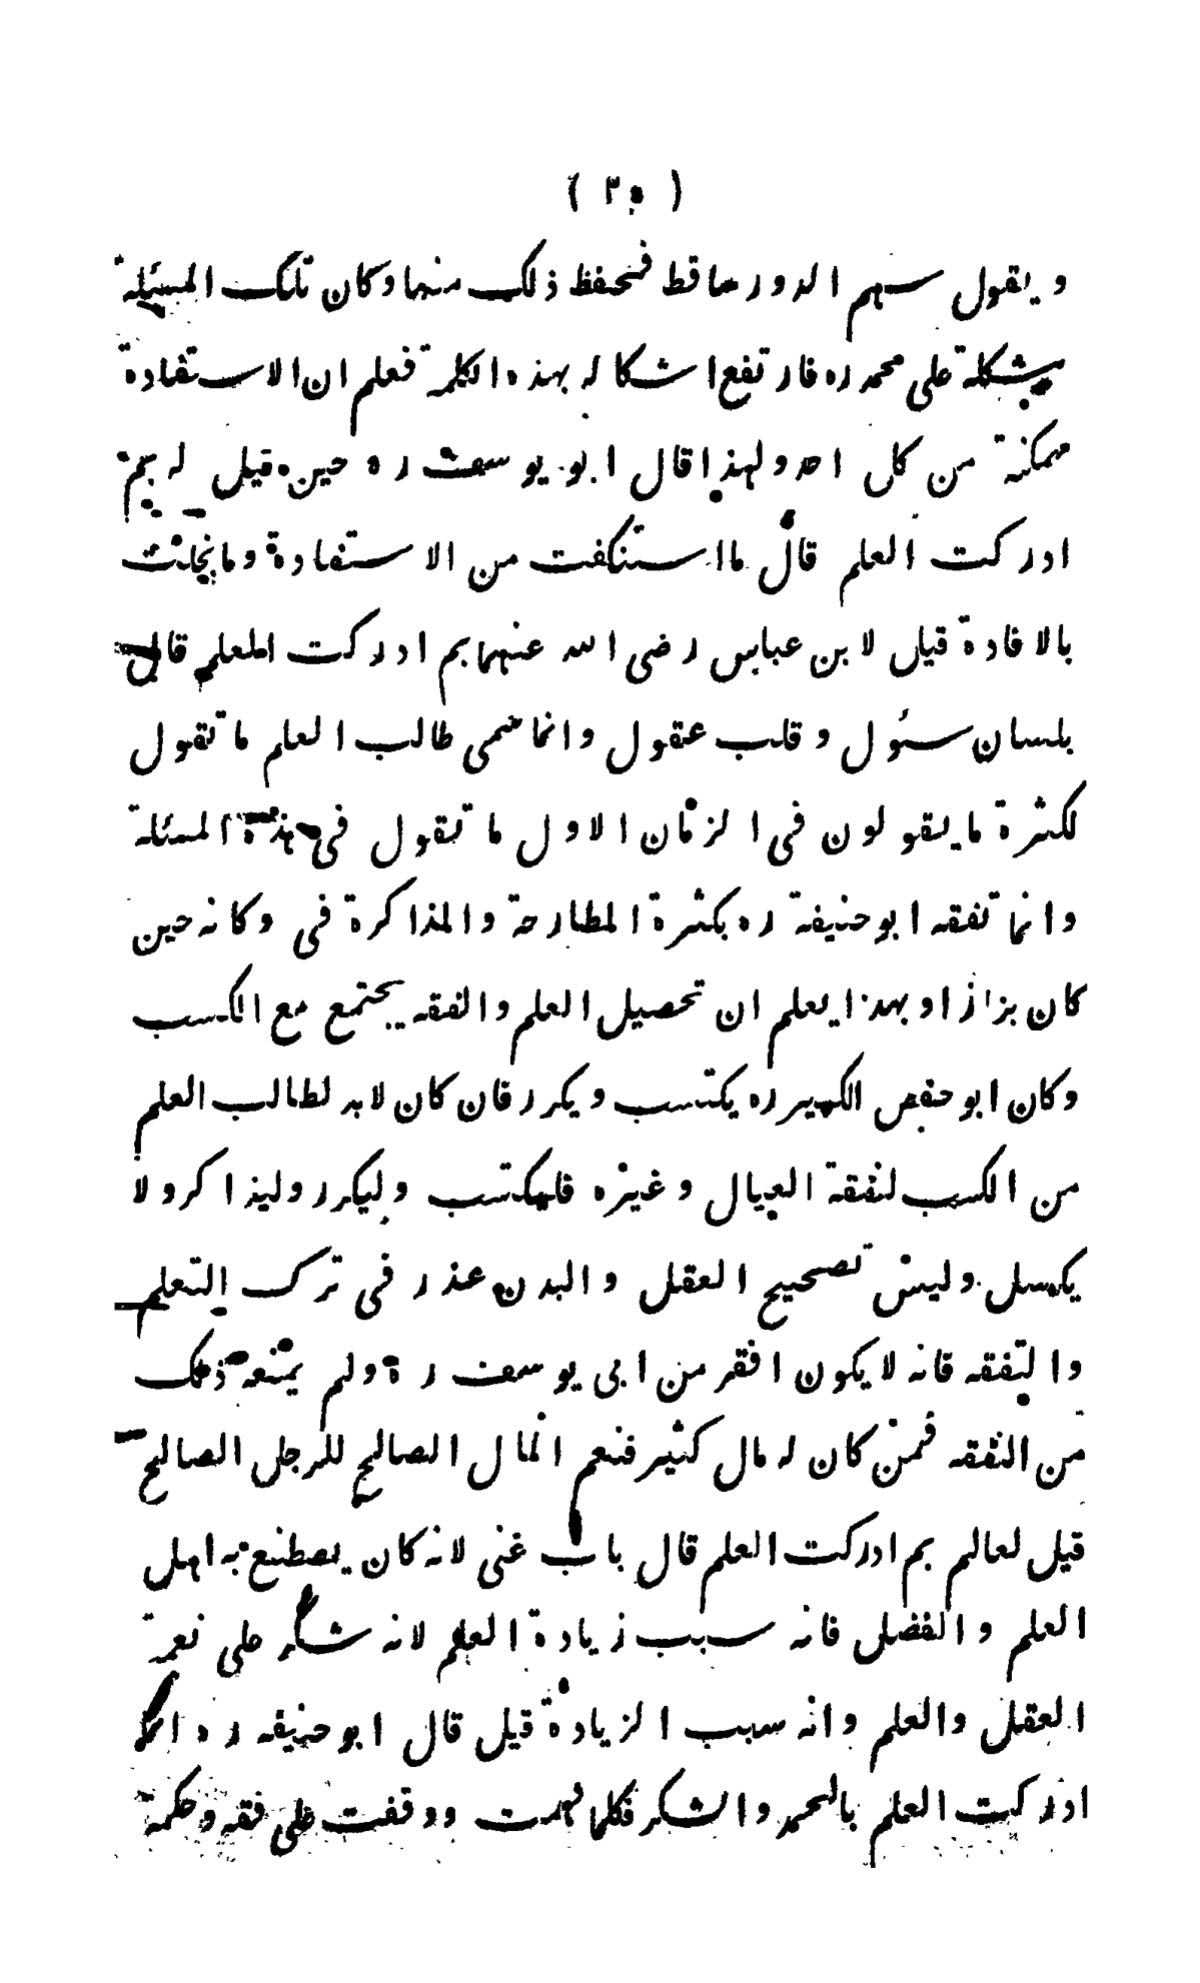 ( ٢٥ )
ويقول سهم الدور ساقط فحفظ ذلك منها وكان تلك المسئلة
مشكلة على محمد ره فارتفع اشكاله بهذه الكلمة فعلم ان الاستفادة
ممكنة من كل احد ولهذا قال ابو يوسف ره حين قيل له بم
ادركت العلم قال ما استنكفت من الاستفادة وما بخلت
بالافادة قيل لابن عباس رضى الله عنهما بم ادركت العلم قال
بلسان سئول وقلب عقول وانما سمى طالب العلم ما تقول
لكثرة ما يقولون فى الزمان الاول ما تقول فى هذه المسئلة
وانما تفقه ابو حنيفة ره بكثرة المطارحة والمذاكرة فى وكانه حين
كان بزازا وبهذا يعلم ان تحصيل العلم والفقه يجتمع مع الكسب
وكان ابو حفص الكبير ره يكتسب ويكرر فان كان لابد لطالب العلم
من الكسب لنفقة العيال وغيره فليكتسب وليكرر وليذاكر ولا
يكسل وليس تصحيح العقل والبدن عذر فى ترك التعلم
والتفقه فانه لا يكون افقر من ابى يوسف ره ولم يمنعه ذلك
من التفقه فمن كان له مال كثير فنعم المال الصالح للرجل الصالح
قيل لعالم بم ادركت العلم قال باب غنى لانه كان يصطنع به اهل
العلم والفضل فانه سبب زيادة العلم لانه شكر على نعمة
العقل والعلم وانه سبب الزيادة قيل قال ابو حنيفه ره انما
ادركت العلم بالحمد والشكر فكلما فهمت ووقفت على فقه وحكمة